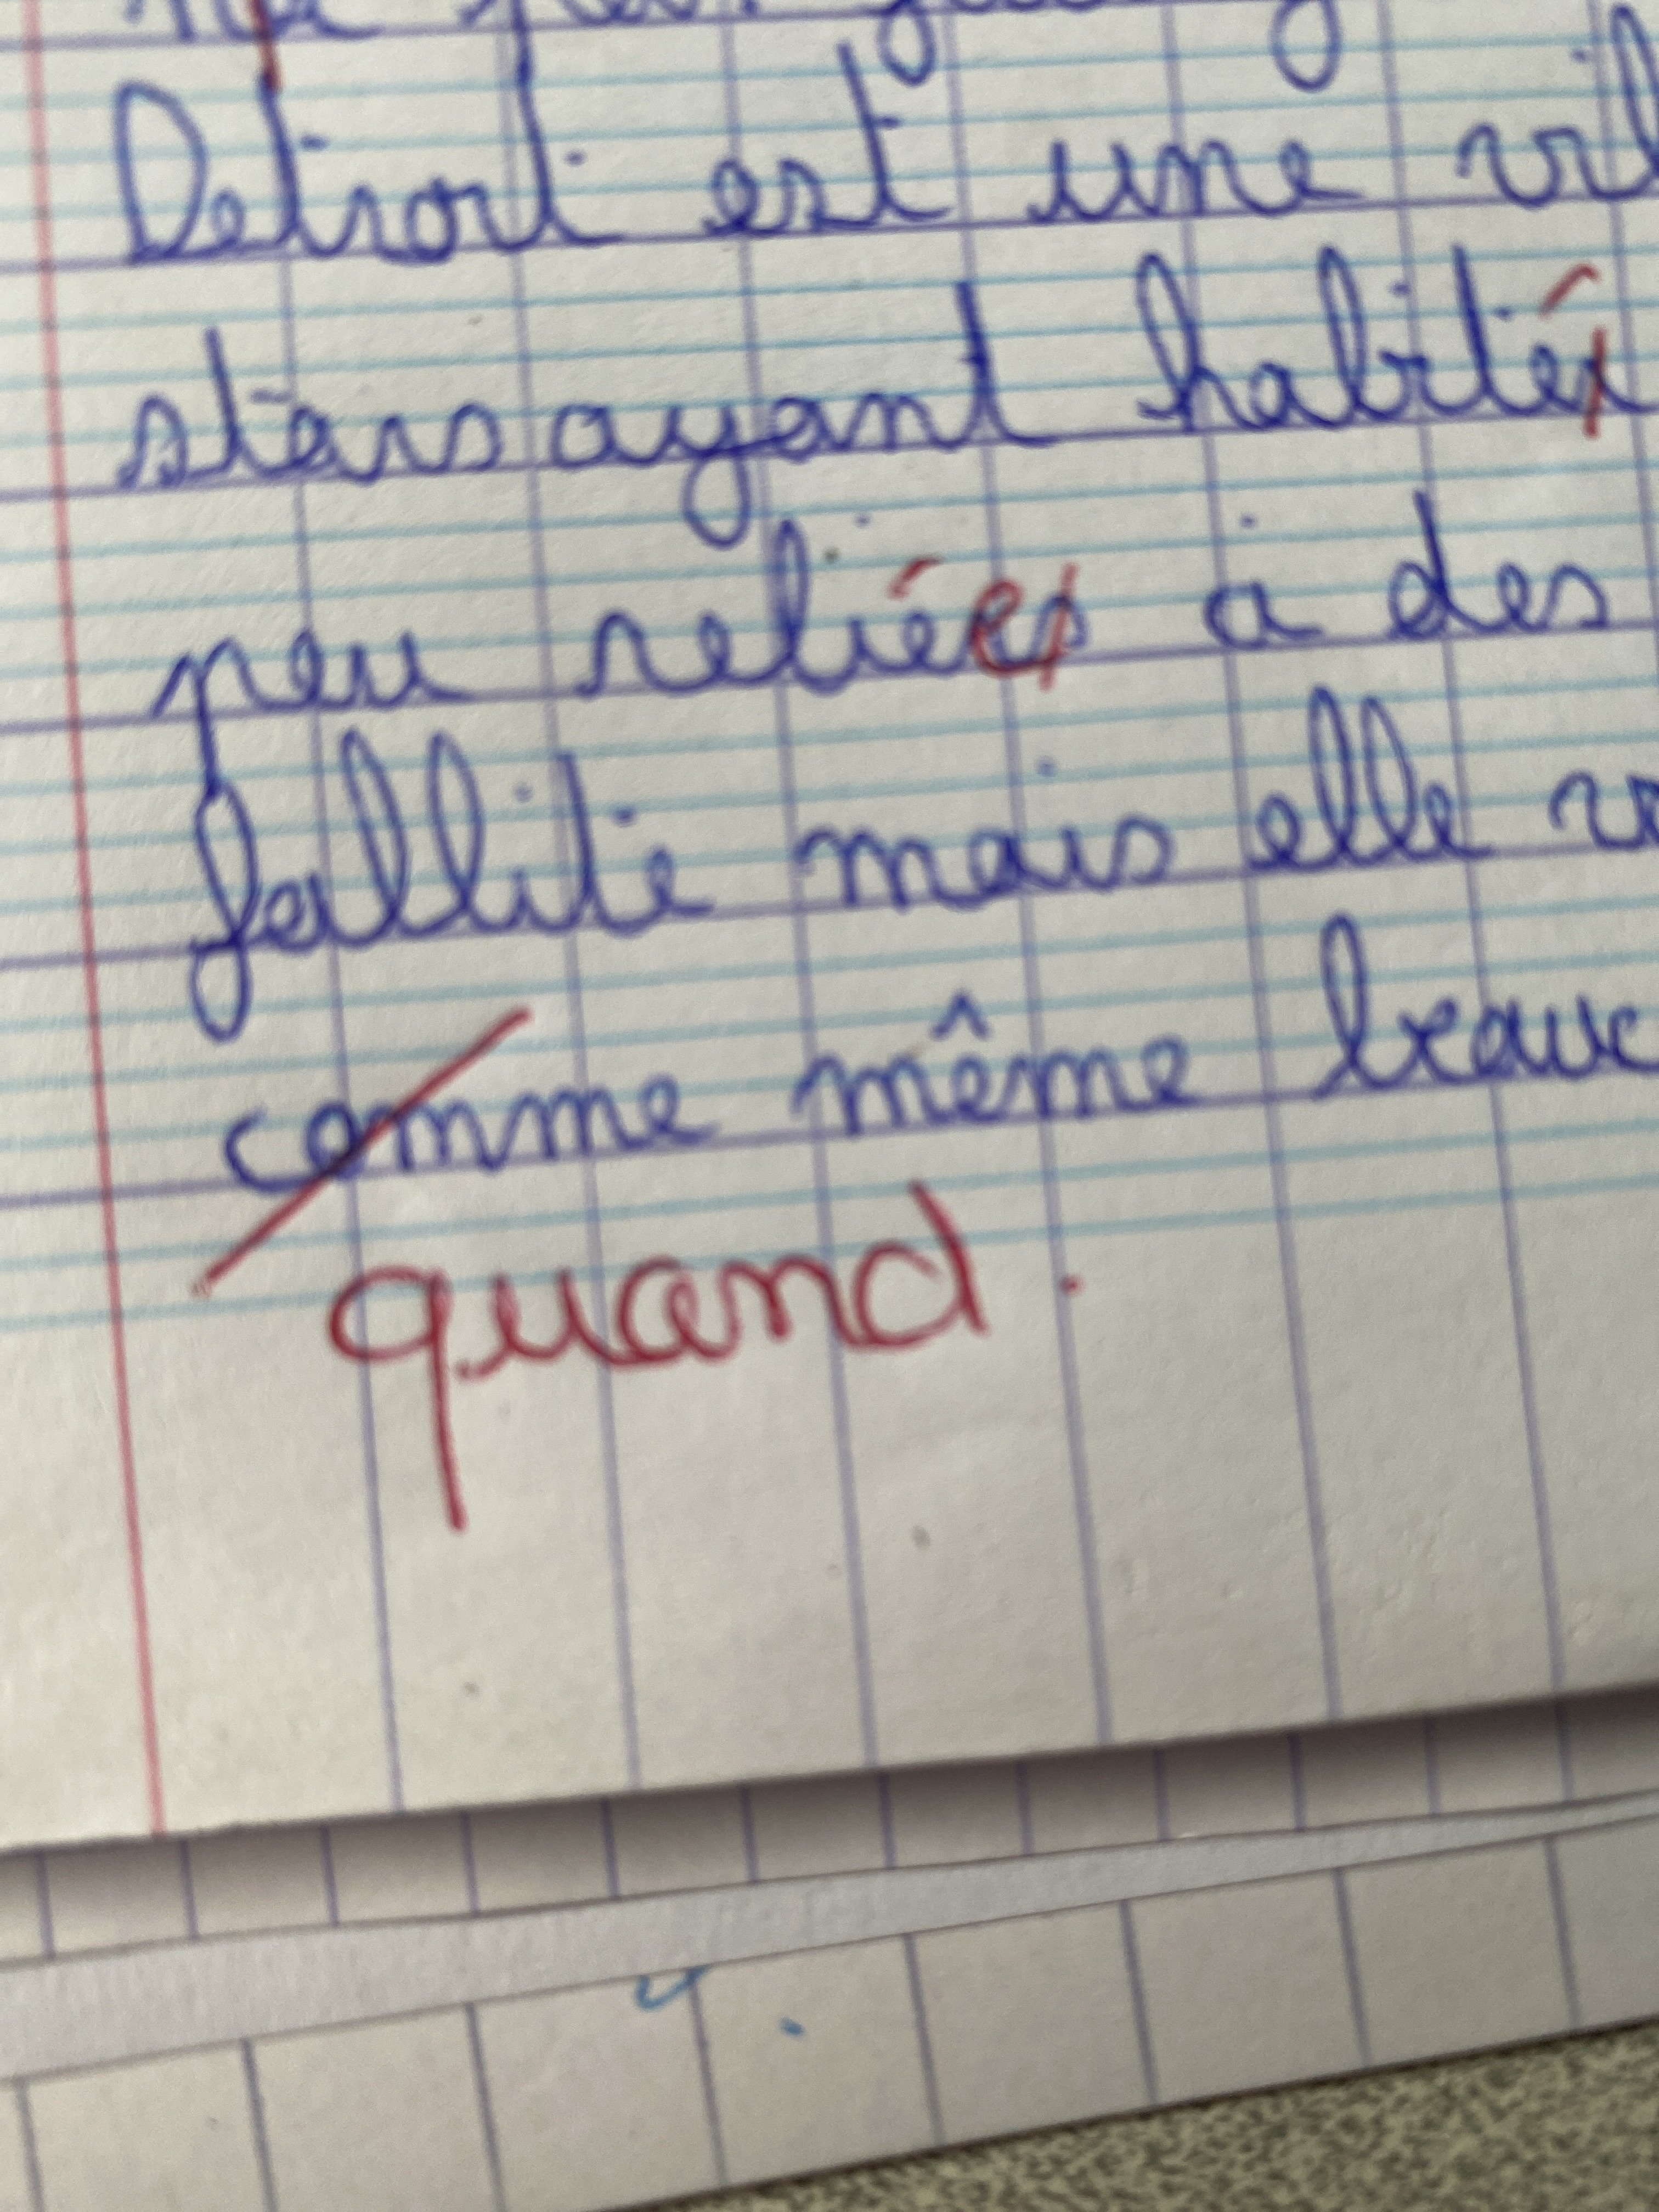 Detroit est une
stars ayant habités
peu reliées à des
faillite mais elle
comme même
quand.